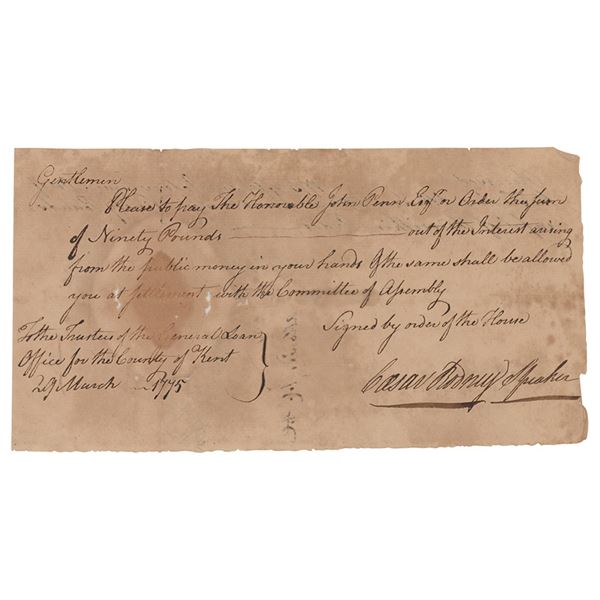 Gentlemen
Please to pay The Honorable John Penn Esqr. or Order the Sum
of Ninety Pounds out of the Interest arising
from the public money in your hands & the same shall be allowed
you at settlement with the Committee of Assembly
Signed by order of the House
To the Trustees of the General Loan
Office for the County of Kent
29 March 1775
Cæsar Rodney Speaker